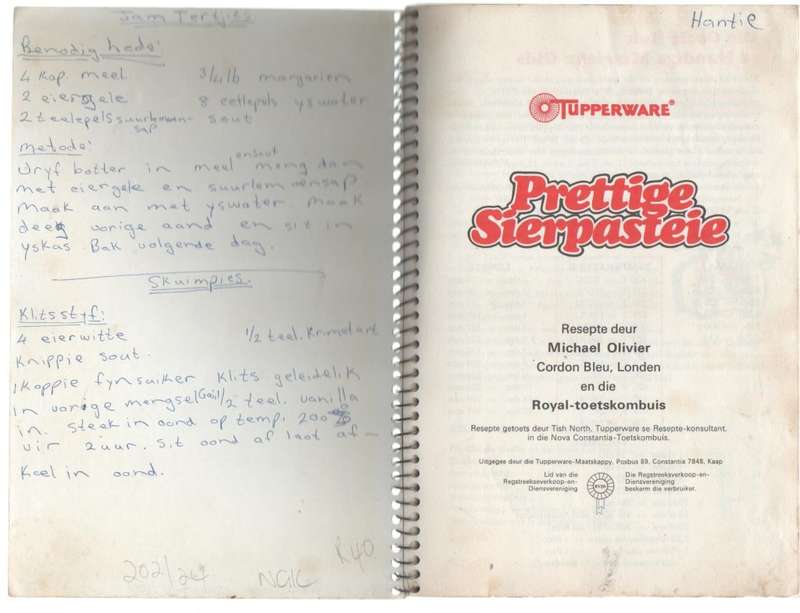 Jam Tertjies
Benodighede:
4 kop. meel 3/4 lb margarien
2 eiergele 8 eetlepels yswater
2 teelepels suurlemoen- sout
sap
metode:
Vryf botter in meel en sout meng dan
met eiergele en suurlemoensap
maak aan met yswater. maak
deeg vorige aand en sit in
yskas. Bak volgende dag.
Skuimpies.
Klits styf:
4 eierwitte 1/2 teel. Krimetart
Knippie sout.
1 koppie fynsuiker Klits geleidelik
in vorige mengsel 1/2 teel. vanilla
in. steek in oond op temp. 200
vir 2 uur. sit oond af laat af-
koel in oond.
202/24 NGK R40
Hantie
TUPPERWARE®
Prettige
Sierpasteie
Resepte deur
Michael Olivier
Cordon Bleu, Londen
en die
Royal-toetskombuis
Resepte getoets deur Tish North, Tupperware se Resepte-konsultant.
in die Nova Constantia-Toetskombuis.
Uitgegee deur die Tupperware-Maatskappy, Posbus 89, Constantia 7848, Kaap
Lid van die
Regstreekseverkoop-en-
Diensvereniging
Die Regstreekseverkoop-en-
Diensvereniging
beskerm die verbruiker.